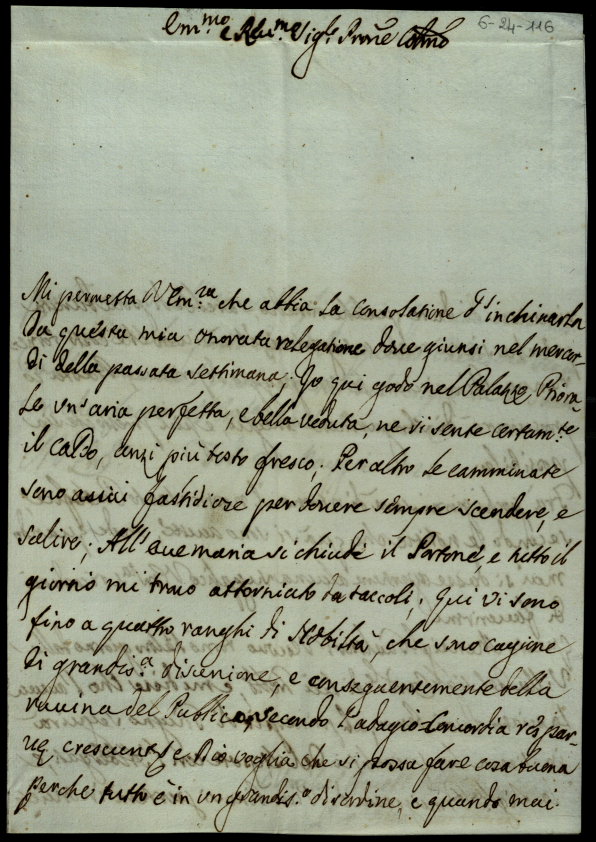 6-24-116
Em.mo e R.mo Sig.r Prone Colmo
Mi permetta V Em.za che abbia la consolatione d'inchinarla
da questa mia onorata relegatione dove giunsi nel mercor-
di della passata settimana; Io qui godo nel Palazzo Priora-
le un'aria perfetta, e bella veduta, ne vi sente certam.te
il caldo, anzi più tosto fresco. Per altro le camminate
sono assai fastidiose per dovere sempre scendere, e
salire; All'avemaria si chiude il Portone, e tutto il
giorno mi trovo attorniato da taccoli. Qui vi sono
fino a quattro ranghi di Nobiltà, che sono cagione
di grandis.a disunione, e conseguentemente della
rovina del Publico, secondo l'adagio Concordia res par-
ve crescunt, e Dio voglia che si possa fare cosa buona
perche tutto è in un grandis.o disordine, e quando mai